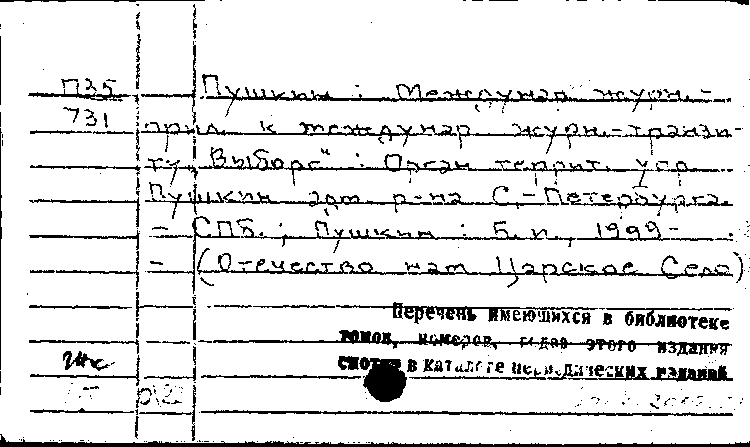 П35 Пушкин : Междунар. журн.-
731 прил. к междунар. журн.-транзи-
ту „Выборг“ : Орган террит. упр.
Пушкин. адм. р-на С.-Петербурга.
– СПб. ; Пушкин : Б. и., 1999-   .
– (Отечество нам Царское Село)
Перечень имеющихся в библиотеке
томов, номеров, годов этого издания
смотри в каталоге периодических изданий